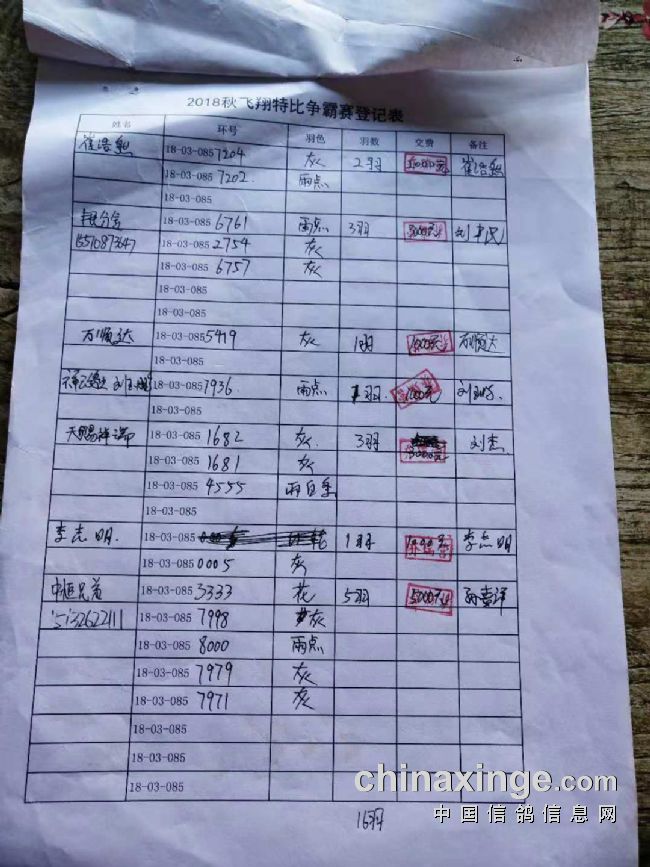 2018秋飞翔特比争霸赛登记表
姓名 环号 羽色 羽数 交费 备注
崔浩 18-03-0857204 灰 2羽 崔浩
18-03-0857202 雨点
18-03-085
18-03-0856761 雨点 3羽 刘
18-03-0852754 灰
18-03-0856757 灰
18-03-085
18-03-085
万顺达 18-03-0855419 灰 1羽 万顺达
18-03-085
18-03-0857936 雨点 1羽
18-03-085
天赐祥瑞 18-03-0851682 灰 3羽 刘杰
18-03-0851681 灰
18-03-0854555 雨白条
18-03-085
李志明 18-03-085 花 1羽 李志明
18-03-0850005 灰
18-03-0853333 花 5羽 5000元
15132622111 18-03-0857998 灰
18-03-0858000 雨点
18-03-0857979 灰
18-03-0857971 灰
18-03-085
18-03-085
18-03-085
16羽
chinaxinge.com
中国信鸽信息网